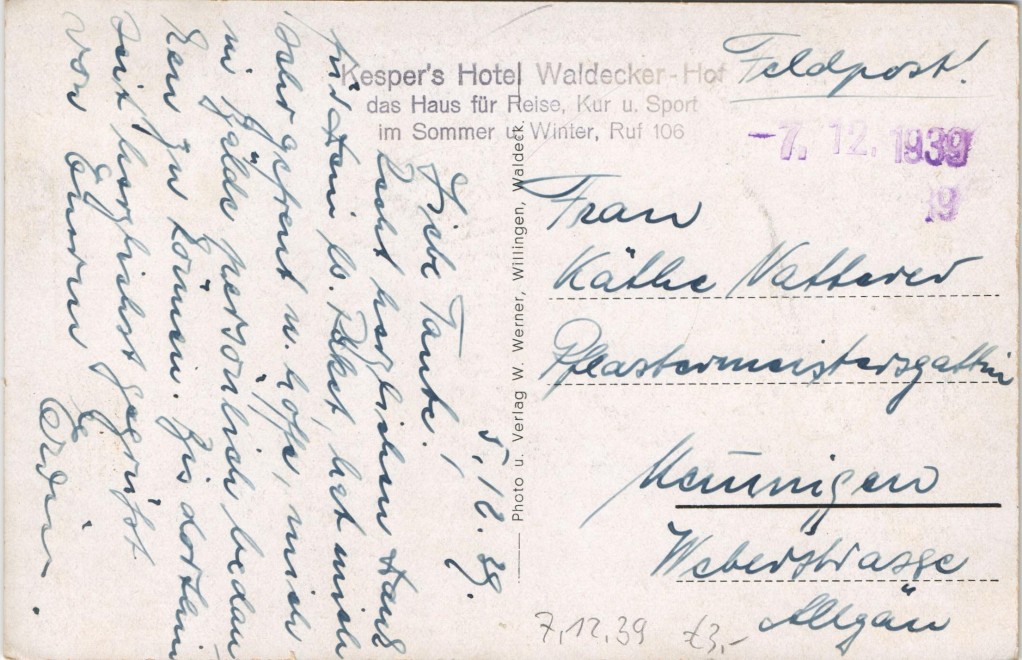 Kesper's Hotel Waldecker-Hof
das Haus für Reise, Kur u. Sport
im Sommer u. Winter, Ruf 106
Feldpost!
-7. 12. 1939
19
5.12.39.
Liebe Tante!
Recht herzlichen Dank
für Dein lb. Paket, hat mich
sehr gefreut u. hoffe, mich
in Bälde persönlich bedan
ken zu können. Bis dorthin
seit herzlichst gegrüßt
von Eurem
Photo u. Verlag W. Werner, Willingen, Waldeck.
Frau
Käthe Vatterer
Pflastermeistersgattin
Memmingen
Weberstrasse
Allgäu
7.12.39 £3,-